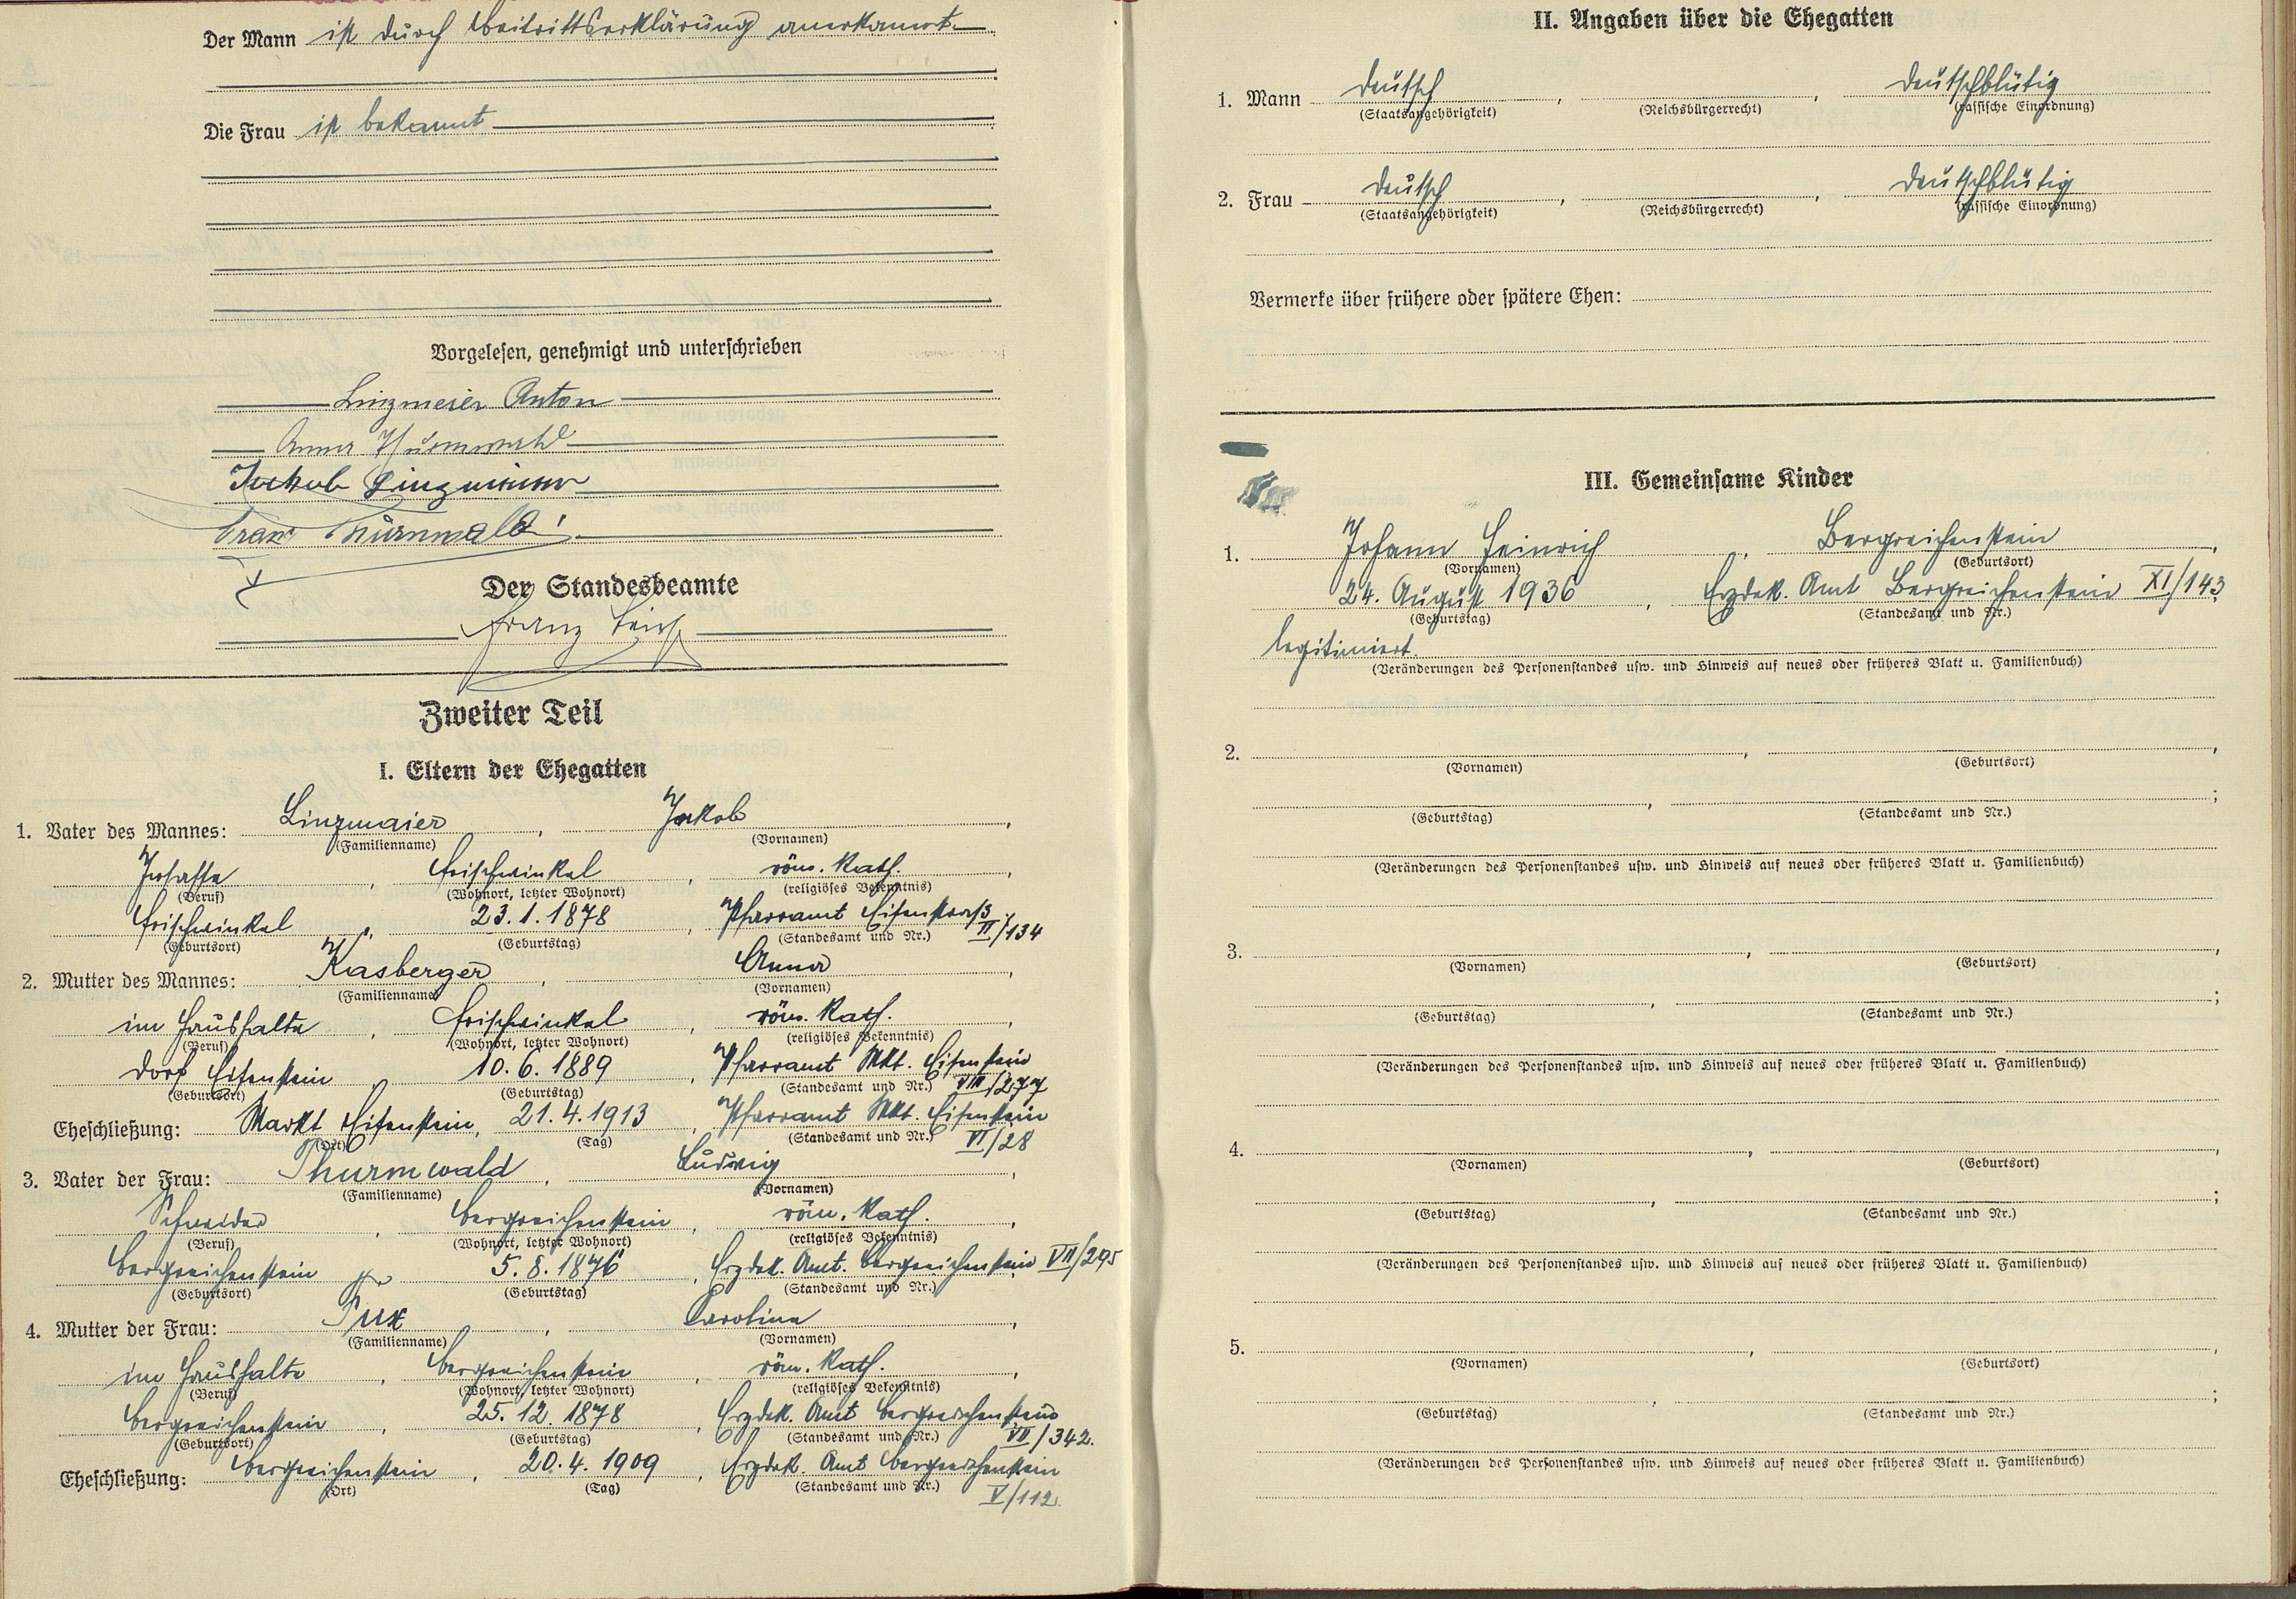 Der Mann ist durch Beitrittserklärung anerkannt.
Die Frau ist bekannt
Vorgelesen, genehmigt und unterschrieben
Linzmeier Anton
Anna Thurnwald
Jakob Linzmeier
Franz Thurnwald
Der Standesbeamte
Franz
Zweiter Teil
I. Eltern der Ehegatten
1. Vater des Mannes: Linzmaier, Jakob,
(Familienname) (Vornamen)
, röm. kath.,
(Beruf) (Wohnort, letzter Wohnort) (religiöses Bekenntnis)
, 23.1.1878, Pfarramt Eisenstraß II/134
(Geburtsort) (Geburtstag) (Standesamt und Nr.)
2. Mutter des Mannes: Kasberger, Anna,
(Familienname) (Vornamen)
im Haushalte, , röm. kath.,
(Beruf) (Wohnort, letzter Wohnort) (religiöses Bekenntnis)
Dorf Eisenstein, 10.6.1889, Pfarramt Mkt. Eisenstein VIII/277
(Geburtsort) (Geburtstag) (Standesamt und Nr.)
Eheschließung: Markt Eisenstein, 21.4.1913, Pfarramt Mkt. Eisenstein VI/28
(Ort) (Tag) (Standesamt und Nr.)
3. Vater der Frau: Thurnwald, Ludwig,
(Familienname) (Vornamen)
Schneider, Bergreichenstein, röm. kath.,
(Beruf) (Wohnort, letzter Wohnort) (religiöses Bekenntnis)
Bergreichenstein, 5.8.1876, Erzdek. Amt. Bergreichenstein VII/295
(Geburtsort) (Geburtstag) (Standesamt und Nr.)
4. Mutter der Frau: Tux, Karolina,
(Familienname) (Vornamen)
im Haushalte, Bergreichenstein, röm. kath.,
(Beruf) (Wohnort, letzter Wohnort) (religiöses Bekenntnis)
Bergreichenstein, 25.12.1878, Erzdek. Amt Bergreichenstein VII/342.
(Geburtsort) (Geburtstag) (Standesamt und Nr.)
Eheschließung: Bergreichenstein, 20.4.1909, Erzdek. Amt Bergreichenstein V/112.
(Ort) (Tag) (Standesamt und Nr.)
II. Angaben über die Ehegatten
1. Mann deutsch, , deutschblütig
(Staatsangehörigkeit) (Reichsbürgerrecht) (rassische Einordnung)
2. Frau deutsch, , deutschblütig
(Staatsangehörigkeit) (Reichsbürgerrecht) (rassische Einordnung)
Vermerke über frühere oder spätere Ehen:
III. Gemeinsame Kinder
1. Johann Heinrich, Bergreichenstein,
(Vornamen) (Geburtsort)
24. August 1936, Erzdek. Amt Bergreichenstein XI/143
(Geburtstag) (Standesamt und Nr.)
legitimiert.
(Veränderungen des Personenstandes usw. und Hinweis auf neues oder früheres Blatt u. Familienbuch)
2. , ,
(Vornamen) (Geburtsort)
, ;
(Geburtstag) (Standesamt und Nr.)
(Veränderungen des Personenstandes usw. und Hinweis auf neues oder früheres Blatt u. Familienbuch)
3. , ,
(Vornamen) (Geburtsort)
, ;
(Geburtstag) (Standesamt und Nr.)
(Veränderungen des Personenstandes usw. und Hinweis auf neues oder früheres Blatt u. Familienbuch)
4. , ,
(Vornamen) (Geburtsort)
, ;
(Geburtstag) (Standesamt und Nr.)
(Veränderungen des Personenstandes usw. und Hinweis auf neues oder früheres Blatt u. Familienbuch)
5. , ,
(Vornamen) (Geburtsort)
, ;
(Geburtstag) (Standesamt und Nr.)
(Veränderungen des Personenstandes usw. und Hinweis auf neues oder früheres Blatt u. Familienbuch)